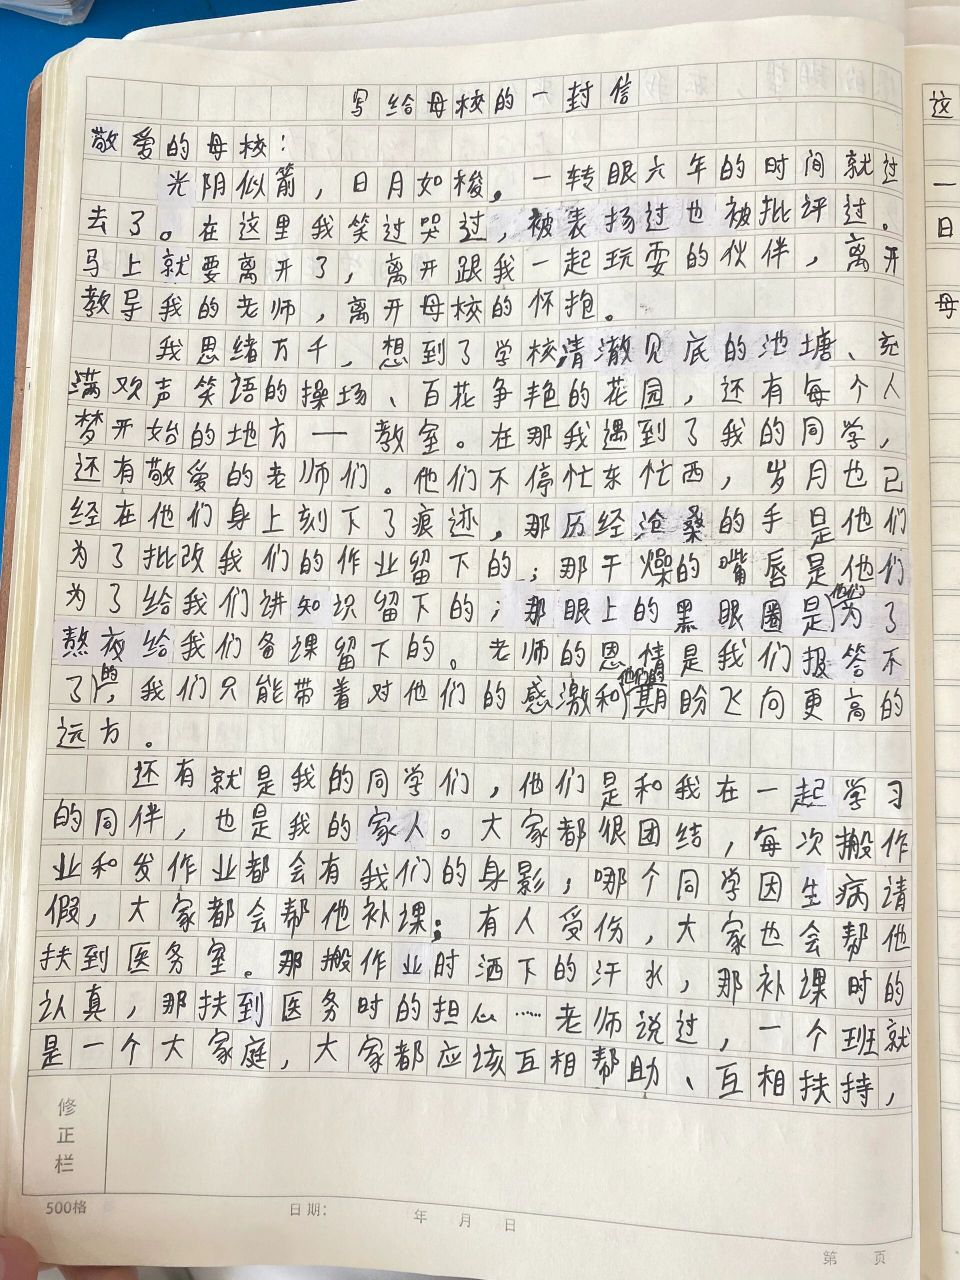 写给母校的一封信
敬爱的母校：
光阴似箭，日月如梭。一转眼六年的时间就过
去了。在这里我笑过哭过，被表扬过也被批评过。
马上就要离开了，离开跟我一起玩耍的伙伴，离开
教导我的老师，离开母校的怀抱。
我思绪万千，想到了学校清澈见底的池塘、充
满欢声笑语的操场、百花争艳的花园，还有每个人
梦开始的地方——教室。在那我遇到了我的同学，
还有敬爱的老师们。他们不停忙东忙西，岁月也已
经在他们身上刻下了痕迹，那历经沧桑的手是他们
为了批改我们的作业留下的；那干燥的嘴唇是他们
为了给我们讲知识留下的；那眼上的黑眼圈是他们为了
熬夜给我们备课留下的。老师的恩情是我们报答不
了的，我们只能带着对他们的感激和他们的期盼飞向更高的
远方。
还有就是我的同学们，他们是和我在一起学习
的同伴，也是我的家人。大家都很团结，每次搬作
业和发作业都会有我们的身影；哪个同学因生病请
假，大家都会帮他补课；有人受伤，大家也会帮他
扶到医务室。那搬作业时洒下的汗水，那补课时的
认真，那扶到医务时的担心……老师说过，一个班就
是一个大家庭，大家都应该互相帮助、互相扶持，
修正栏
500格
日期： 年 月 日
第 页
这
一
日
母